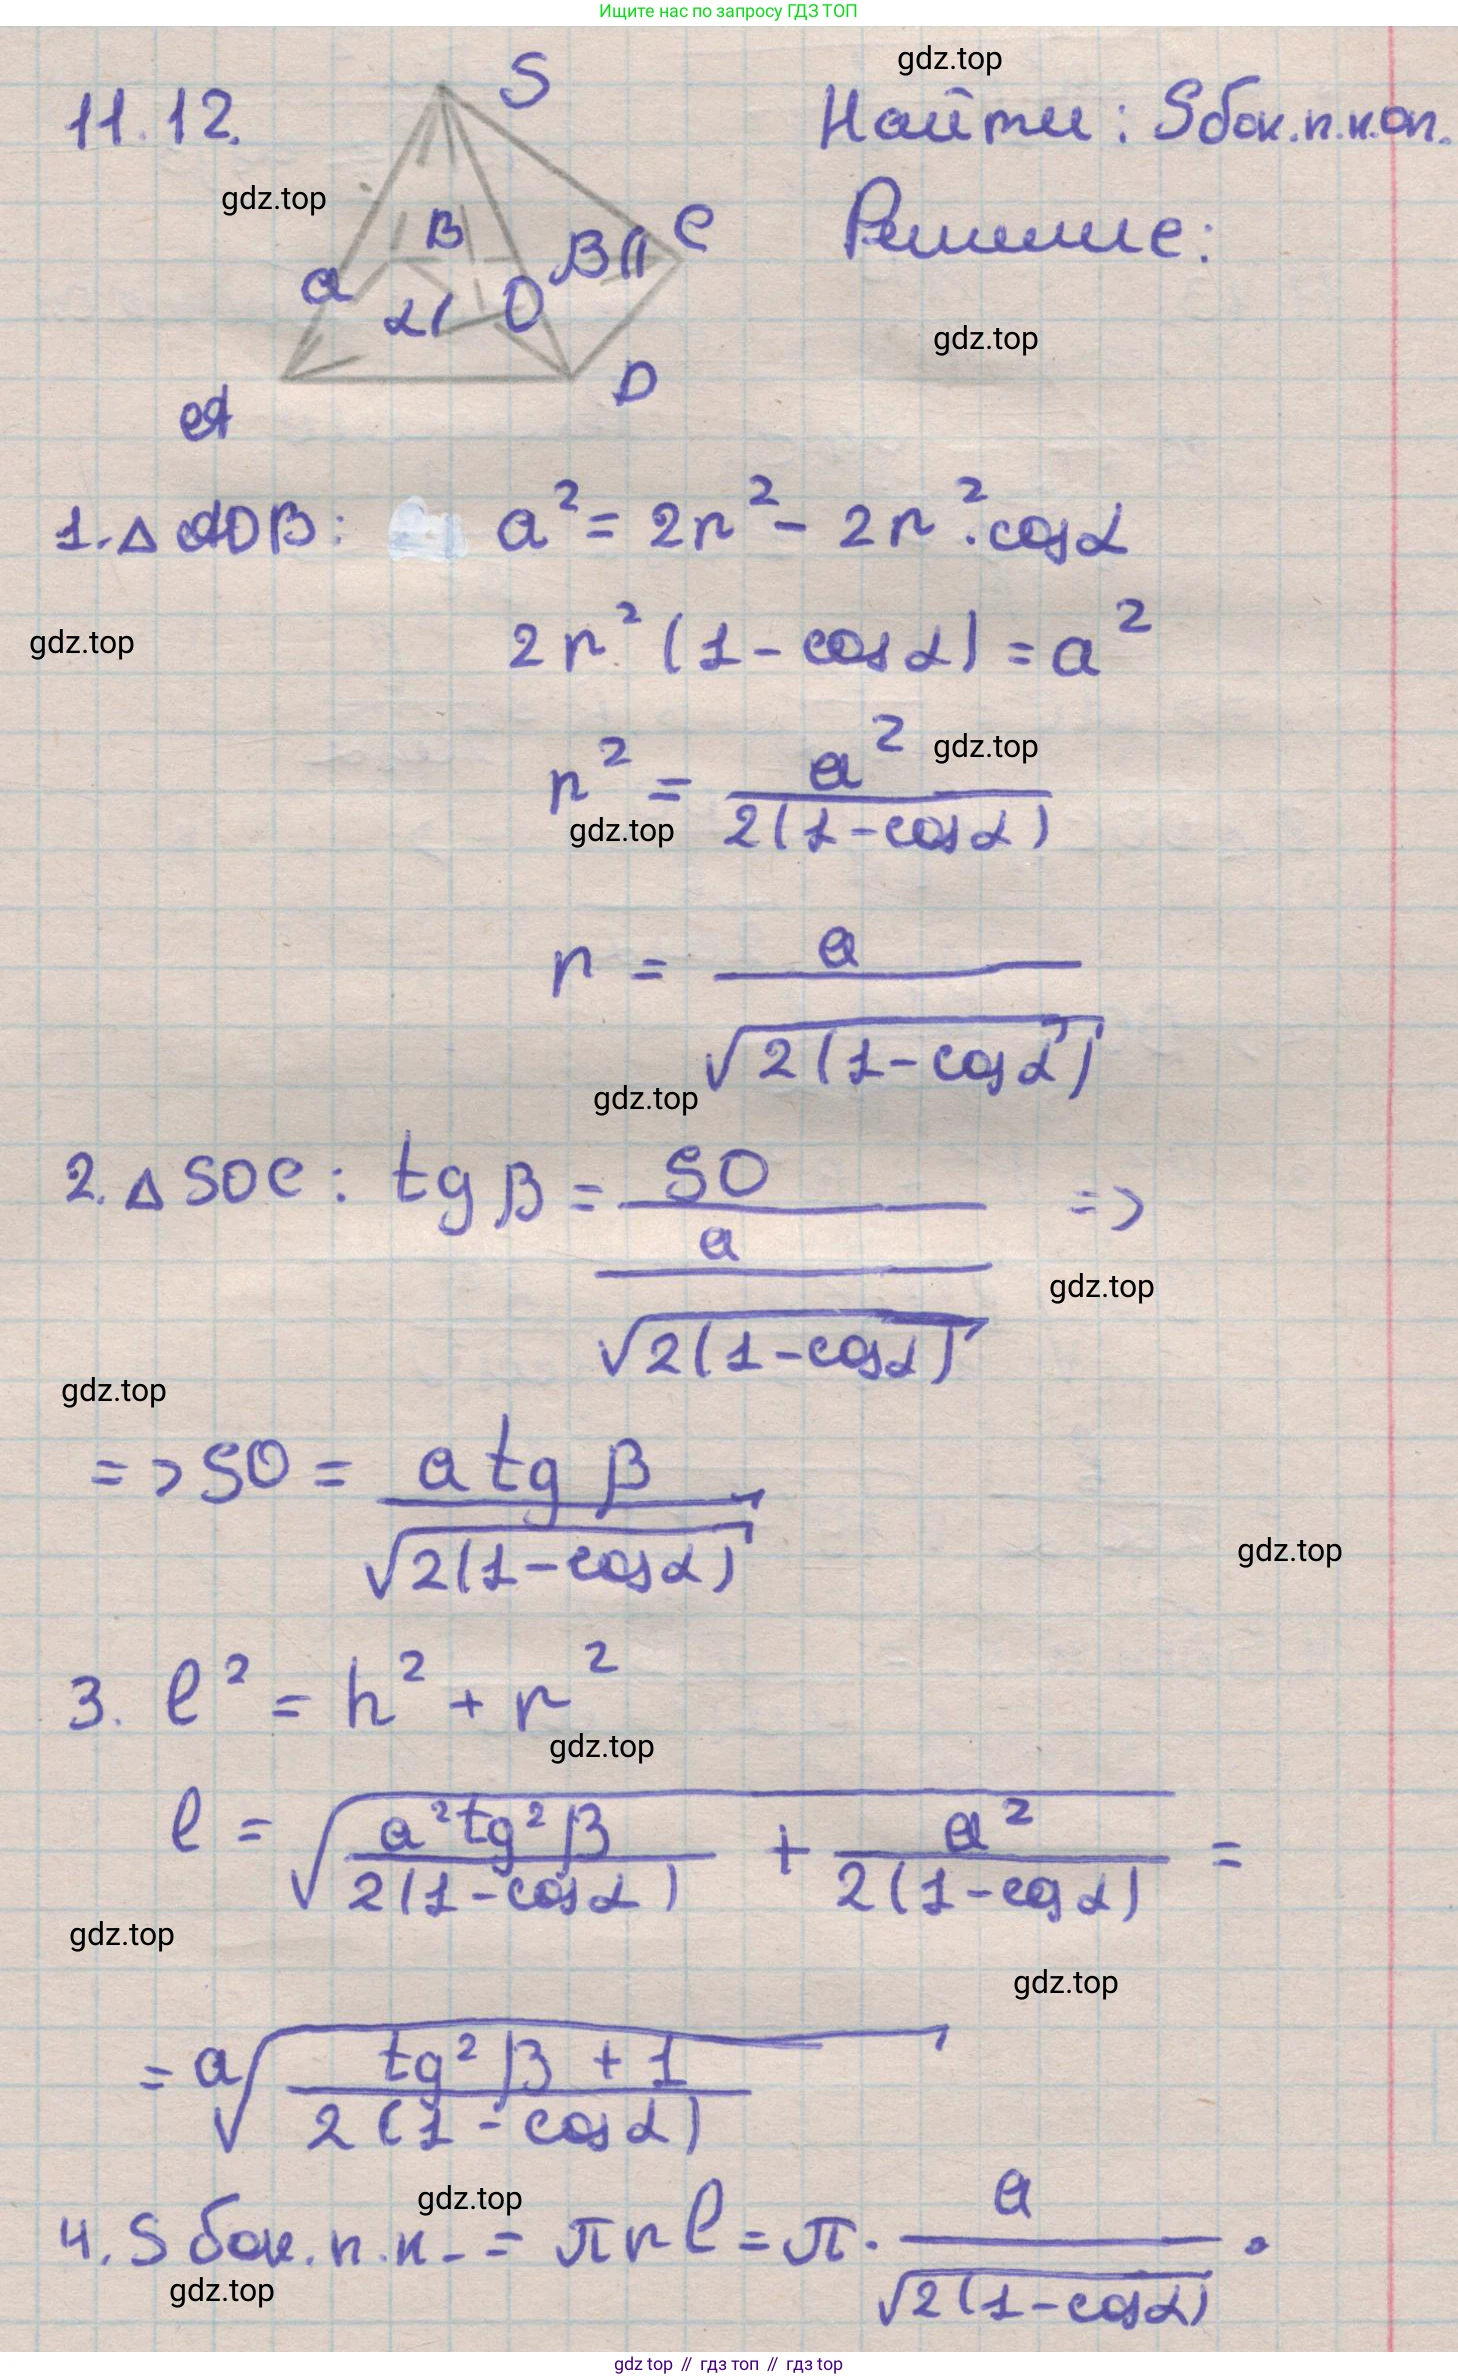 Ищите нас по запросу ГДЗ ТОП
gdz.top
11.12.
S
Найти: Sбок.п.к.оп.
gdz.top
B
β
C
Решение:
a
α
O
gdz.top
D
A
1. △ AOB: a² = 2r² - 2r² · cosα
gdz.top
2r² (1 - cosα) = a²
gdz.top
r² = a² / 2(1 - cosα)
gdz.top
r = a / √2(1 - cosα)
gdz.top
2. △ SOC: tg β = SO / a / √2(1 - cosα) =>
gdz.top
gdz.top
=> SO = a tg β / √2(1 - cosα)
gdz.top
3. l² = h² + r²
gdz.top
l = √ a² tg² β / 2(1 - cosα) + a² / 2(1 - cosα) =
gdz.top
gdz.top
= a √ tg² β + 1 / 2(1 - cosα)
gdz.top
4. S бок.п.к. = π r l = π · a / √2(1 - cosα) ·
gdz.top
gdz top // гдз топ // гдз top